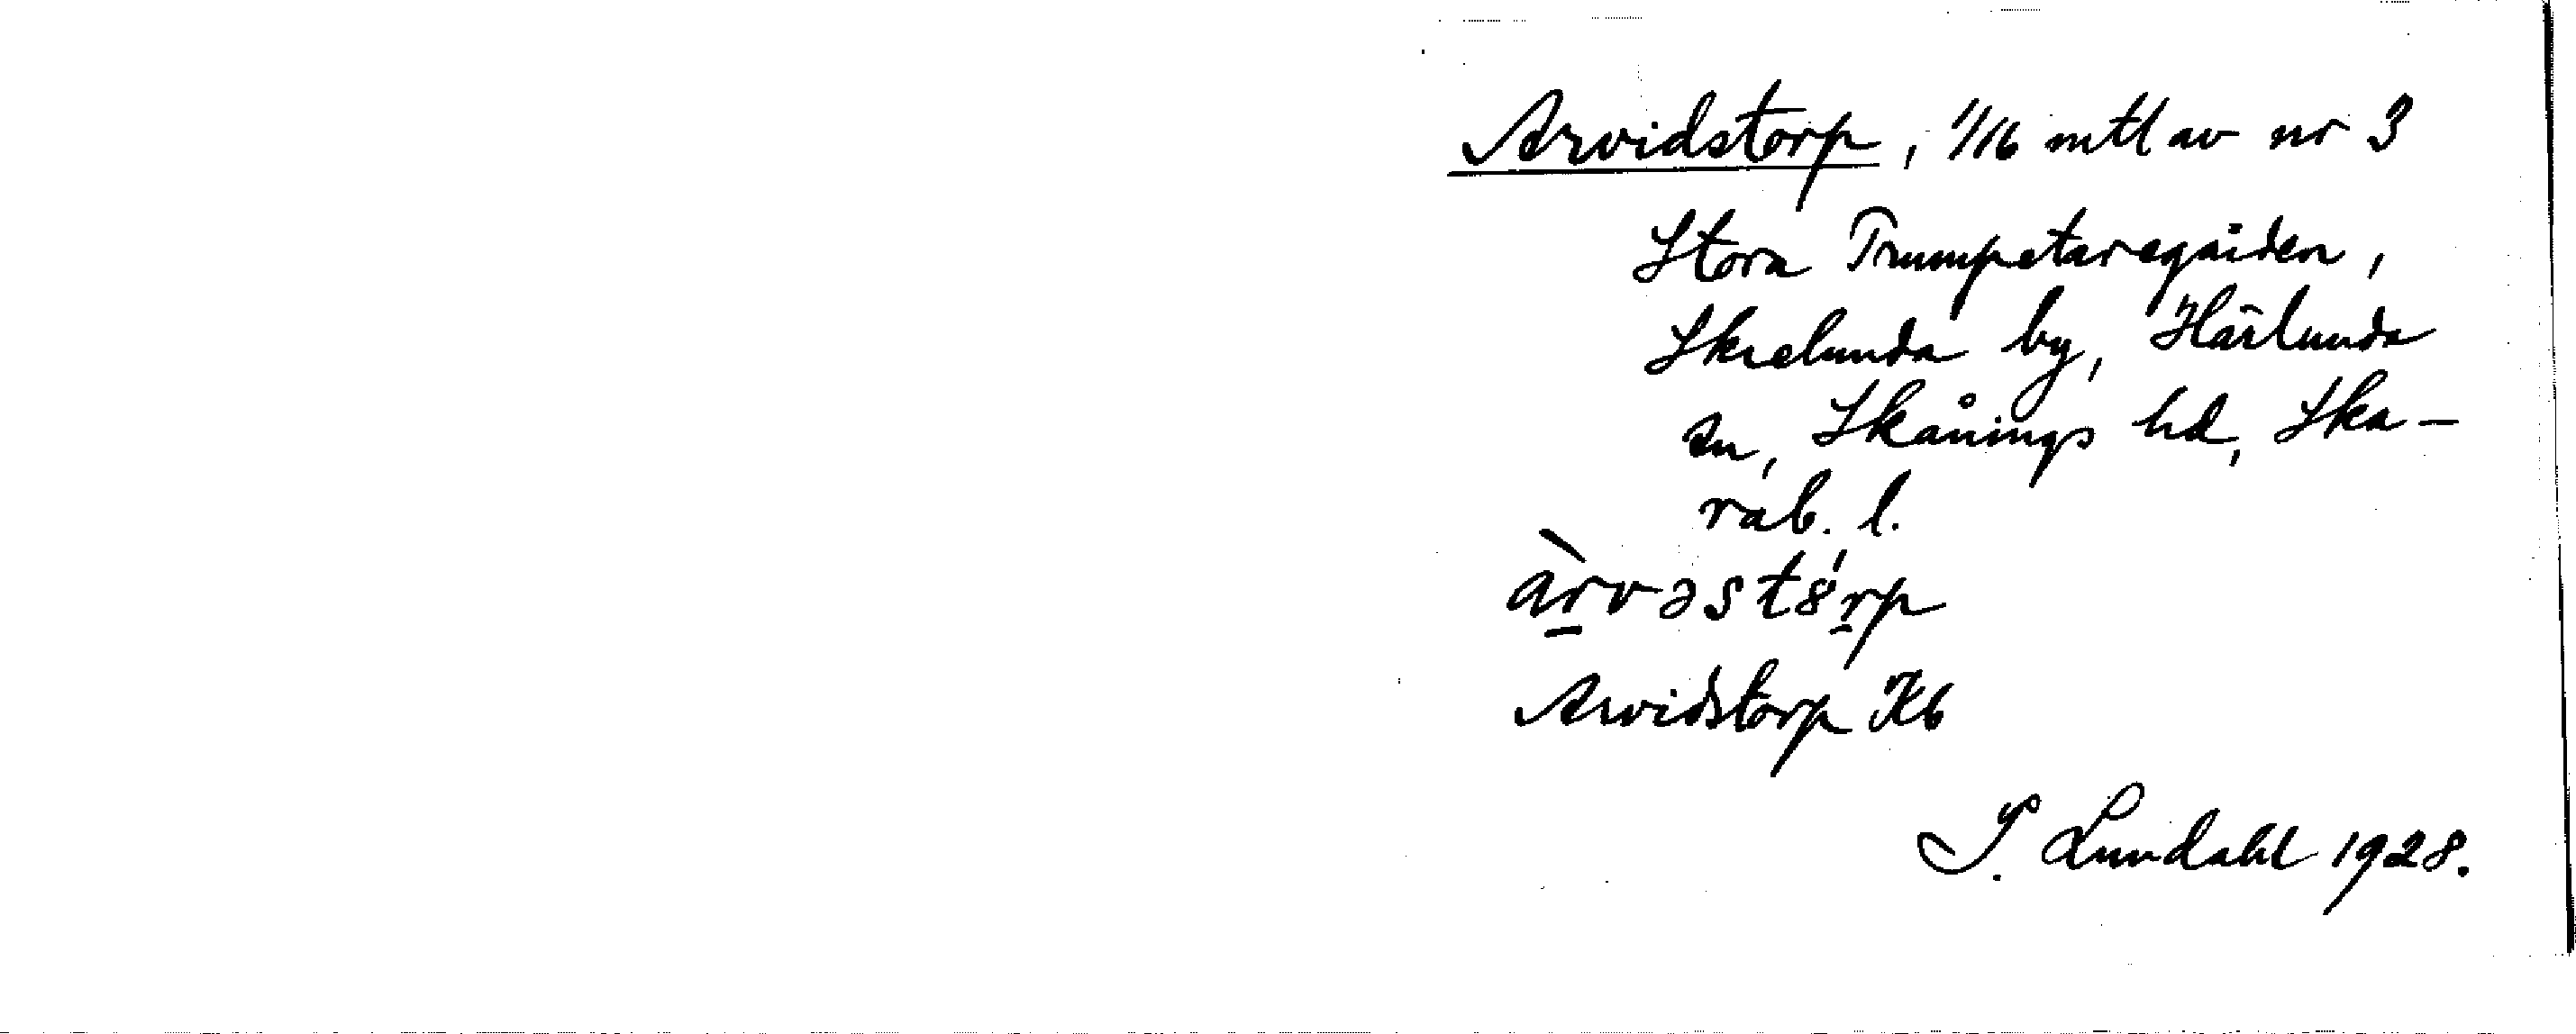 Arvidstorp, 1/16 mtl av nr 3
Stora Trumpetaregården,
Skrelunda by, Härlunda
sn, Skånings hd, Ska-
rab. l.
àrvəst8́rp
Arvidstorp Kb
S. Lundahl 1928.